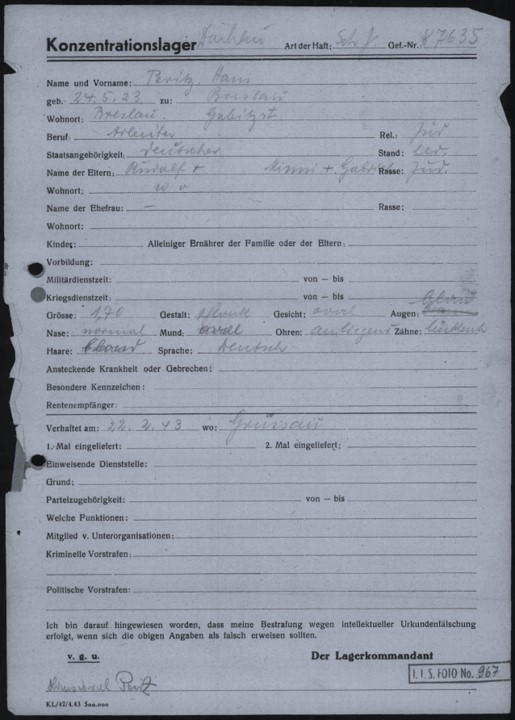 Konzentrationslager Dachau Art der Haft: Sch. J. Gef.-Nr.: 87635
Name und Vorname: Peritz Hans
geb. 24.5.23 zu: Breslau
Wohnort: Breslau.
Beruf: Arbeiter Rel.: Jüd
Staatsangehörigkeit: deutscher Stand: led.
Name der Eltern: Rudolf + Minni + Rasse: Jüd.
Wohnort: w. o
Name der Ehefrau: — Rasse:
Wohnort:
Kinder: Alleiniger Ernährer der Familie oder der Eltern:
Vorbildung:
Militärdienstzeit: von — bis
Kriegsdienstzeit: von — bis
Grösse: 1,70 Gestalt: schlank Gesicht: oval Augen: blau
Nase: normal Mund: oval Ohren: anliegend Zähne:
Haare: blond Sprache: Deutsch
Ansteckende Krankheit oder Gebrechen:
Besondere Kennzeichen:
Rentenempfänger:
Verhaftet am: 22.2.43 wo: Grüssau
1. Mal eingeliefert: 2. Mal eingeliefert:
Einweisende Dienststelle:
Grund:
Parteizugehörigkeit: von — bis
Welche Funktionen:
Mitglied v. Unterorganisationen:
Kriminelle Vorstrafen:
Politische Vorstrafen:
Ich bin darauf hingewiesen worden, dass meine Bestrafung wegen intellektueller Urkundenfälschung
erfolgt, wenn sich die obigen Angaben als falsch erweisen sollten.
v. g. u. Der Lagerkommandant
I. I. S. FOTO No. 967
Peritz
KL/42/4.43 500.000